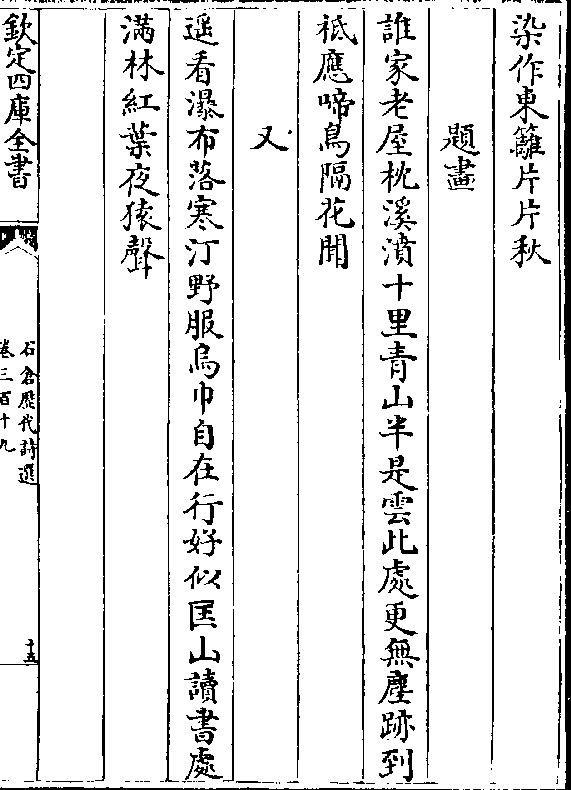 染作東籬片片秋
題畫
誰家老屋枕溪濆十里青山半是雲此處更無塵跡到
祗應啼鳥隔花聞
又
遥看瀑布落寒汀野服烏巾自在行好似匡山讀書處
滿林紅葉夜猿聲
欽定四庫全書
石倉歷代詩選
卷三百十九
十五